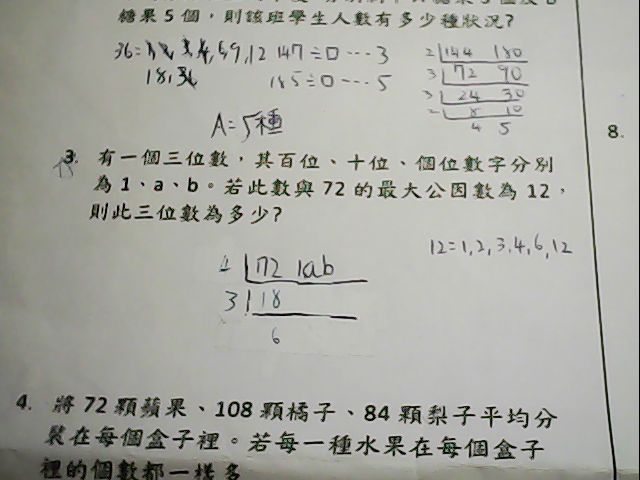 糖果5個，則該班學生人數有多少種狀況?
36=1,2,3,4,6,9,12
18,36
147÷□…3
185÷□…5
2 144 180
3 72 90
3 24 30
2 8 10
4 5
A=5種
3. 有一個三位數，其百位、十位、個位數字分別
為1、a、b。若此數與72的最大公因數為12，
則此三位數為多少?
12=1,2,3,4,6,12
72 1ab
3 18
6
4. 將72顆蘋果、108顆橘子、84顆梨子平均分
裝在每個盒子裡。若每一種水果在每個盒子
裡的個數都一樣多
8.